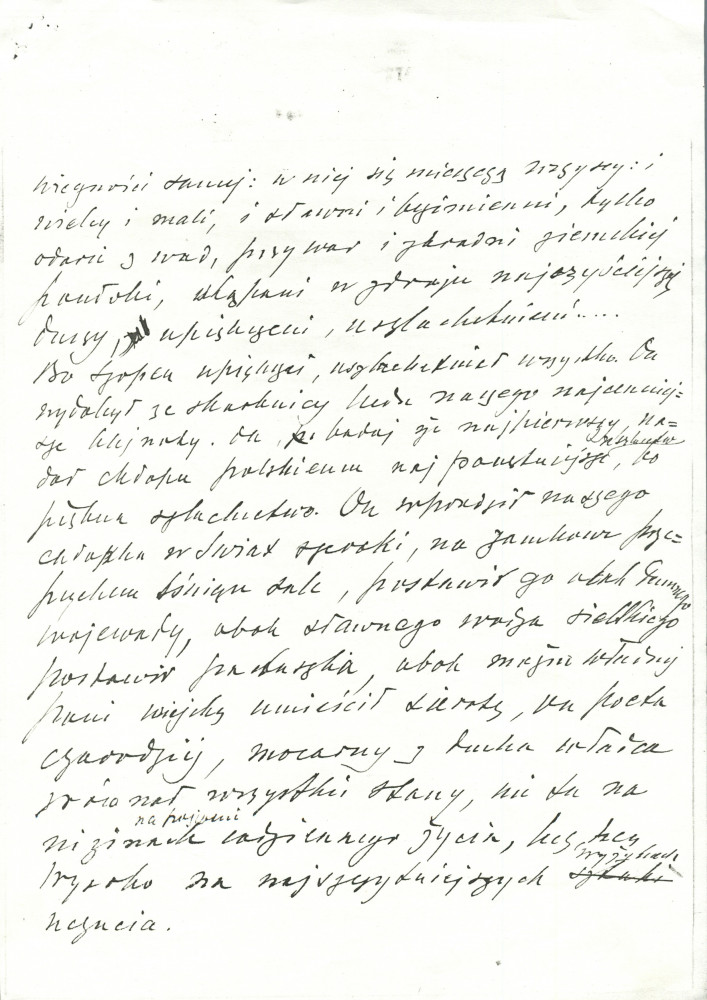 więzności samej: w niej się mieszczą wszyscy: i
wielcy i mali, i sławni i bezimienni, tylko
odarci z wad, przywar i zdradni ziemskiej
powłoki, skąpani w zdroju najczyściejszej
duszy, upiększeni, uszlachetnieni....
Bo Szopen upiększał, uszlachetniał wszystko. On
wydobył ze skarbnicy ludu naszego najcenniej=
sze klejnoty. On, bodaj że najpierwszy, na=
dał chłopu polskiemu najpowszechniejsze, bo
piękna szlachectwo. On wprowadził naszego
chłopka w świat szeroki, na zamkowe prze=
pychem lśniące sale, postawił go obok dumnego
wojewody, obok sławnego wodza sielskiego
postawił pastuszka, obok możnowładnej
pani wiejską umieścił sierotę, on poeta
czarodziej, mocarny z ducha władca
zrównał wszystkie stany, nie tu na
na poziomie
nizinach codziennego życia, lecz hen
wyżynach
wysoko na najszczytniejszych sztuki
uczucia.